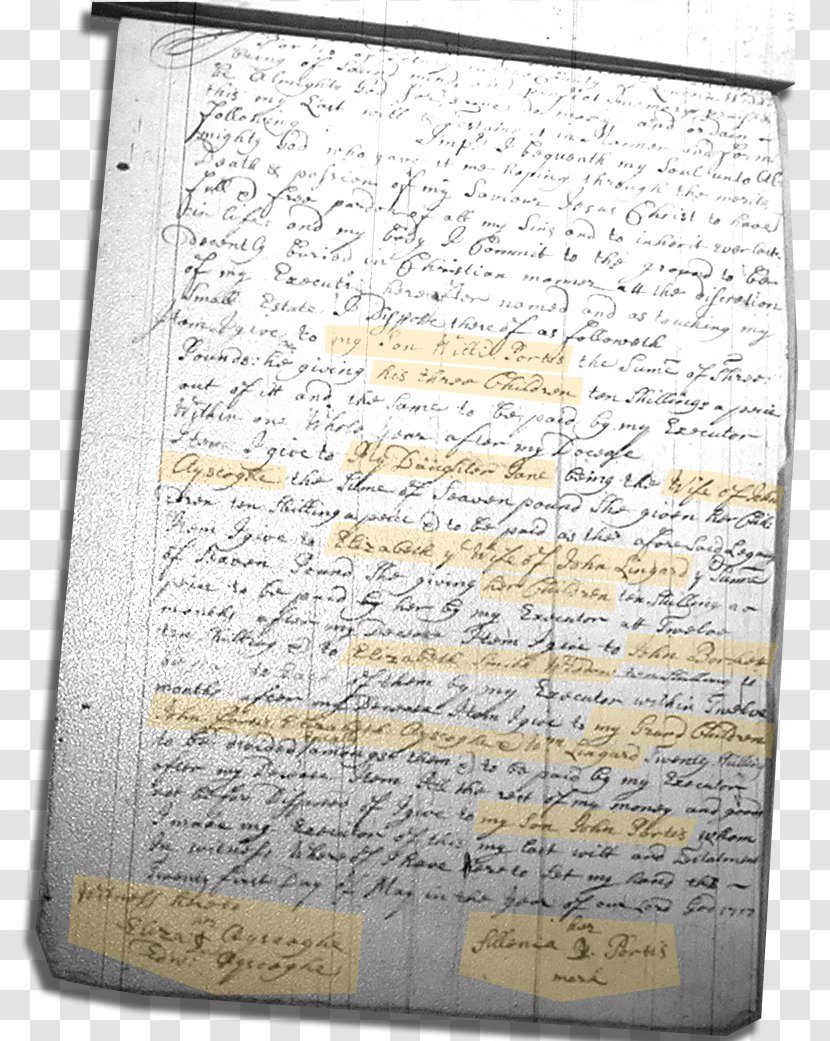 being of sound mind and perfect memory praised
be Almighty God for ordaine
this my Last will & in Manner and form
following Imps I bequeath my Soul unto Al
mighty God who gave it me hoping through the merits
Death & passion of my Saviour Jesus Christ to have
full & free pardon of all my Sins and to inherit everlast
ing life: and my body I Commit to the ground to be
decently buried in Christian manner att the discretion
of my Executr hereafter named and as touching my
Small Estate I Dispose thereof as followeth
Item I give to my Son Portis the Sume of Three
Pounds: he giving his three Children ten Shillings a peice
out of itt and the Same to be paid by my Executor
Within one Whole year after my Decease
Item I give to My Daughter Jane being the Wife of John
Ayscoghe the Sume of Seaven pound She given her Chil
dren ten Shilling a peice & to be paid as the aforesaid Legacy
Item I give to Elizabeth y Wife of John Lingard y Sume
of Seaven Pound She giving her Children ten Shilling a
peice to be paid by her by my Executor att Twelve
months after my Decease Item I give to John
ten Shilling & to Elizabeth Smith Widdow ten Shilling to
be to Each of them by my Executor within Twelve
months after my Decease Item I give to my Grand Children
John Portis & Elizabeth Ayscoghe & Wm Lingard Twenty Shillings
to be devided amongst them & to be paid by my Executor
after my Decease Item All the rest of my money and goods
not before Disposed of I give to my Son John Portis whom
I make my Executor of this my last will and Testament
In witness Whereof I have here to Set my hand this
Twenty first Day of May in the year of our Lord God 1717
Witness
Eliza Ayscoghe
Edw. Ayscoghe
her
Sillenca Portis
mark